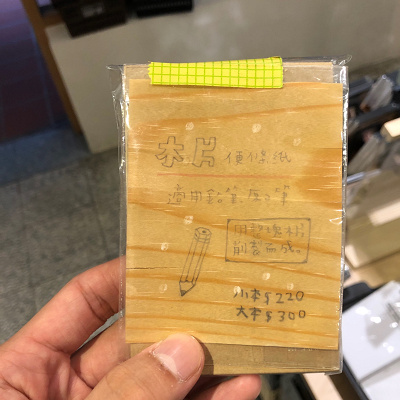 木片 便條紙
適用鉛筆、原子筆
削去而成。
小本$220
大本$300